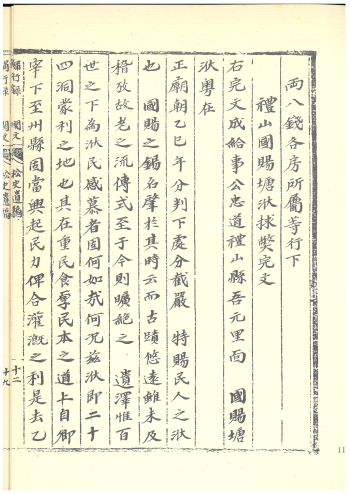 兩八錢各房所屬等行下
禮山國賜塘洑抹獎完文
右完文成給事公忠道禮山縣吾元里面 國賜塘
洑粵在
正廟朝乙巳年分判下處分截嚴 特賜民人之洑
也 國賜之錫名肇於其時云而古蹟悠遠雖未及
稽攷故老之流傳式至于今則曠絶之 遺澤惟百
世之下為洑民感慕者固何如哉何況玆洑即二十
四洞蒙利之地也其在重民食厚民本之道上自鄉
宰下至州縣固當興起民力俾合灌漑之利是去乙